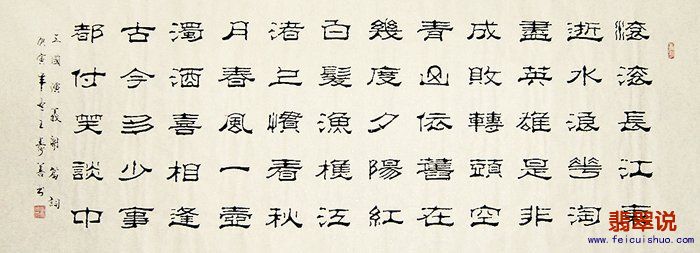 滚滚長江東
逝水浪花淘
盡英雄是非
成敗轉頭空
青山依舊在
幾度夕陽紅
白髮漁樵江
渚上慣看秋
月春風一壺
濁酒喜相逢
古今多少事
都付笑談中
三國演義開篇詞
庚寅年
翡翠说
www.feicuishuo.com